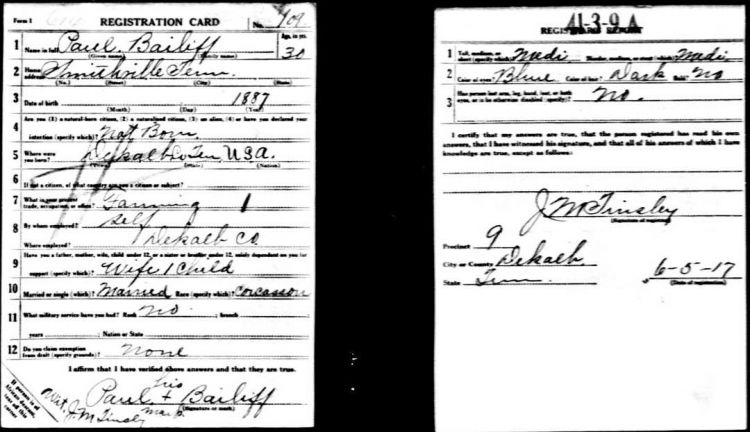 Form 1
REGISTRATION CARD
No. 109
1 Name in full Paul Bailiff
(Given name) (Family name)
Age, in yrs. 30
2 Home address Smithville Tenn.
(No.) (Street) (City) (State)
3 Date of birth 1887
(Month) (Day) (Year)
4 Are you (1) a natural-born citizen, (2) a naturalized citizen, (3) an alien, (4) or have you declared your
intention (specify which)? Nat Born
5 Where were you born? Dekalb Co Ten U.S.A.
(Town) (State) (Nation)
6 If not a citizen, of what country are you a citizen or subject?
7 What is your present trade, occupation, or office? Farming 1
8 By whom employed? Self
Where employed? Dekalb Co
9 Have you a father, mother, wife, child under 12, or a sister or brother under 12, solely dependent on you for
support (specify which)? Wife 1 Child
10 Married or single (which)? Married Race (specify which)? Corcasson
11 What military service have you had? Rank no ; branch
years ; Nation or State
12 Do you claim exemption from draft (specify grounds)? none
I affirm that I have verified above answers and that they are true.
his
Paul + Bailiff
mark
(Signature or mark)
Wit.
J. M Tinsley
If person is of African descent, tear off this corner
41-3-9 A
REGISTRAR'S REPORT
1 Tall, medium, or short (specify which)? Medi Slender, medium, or stout (which)? Medi
2 Color of eyes? Blue Color of hair? Dark Bald? No
3 Has person lost arm, leg, hand, foot, or both eyes, or is he otherwise disabled (specify)? No.
I certify that my answers are true, that the person registered has read his own
answers, that I have witnessed his signature, and that all of his answers of which I have
knowledge are true, except as follows:
J M Tinsley
(Signature of registrar)
Precinct 9
City or County Dekalb
State Tenn.
6-5-17
(Date of registration)